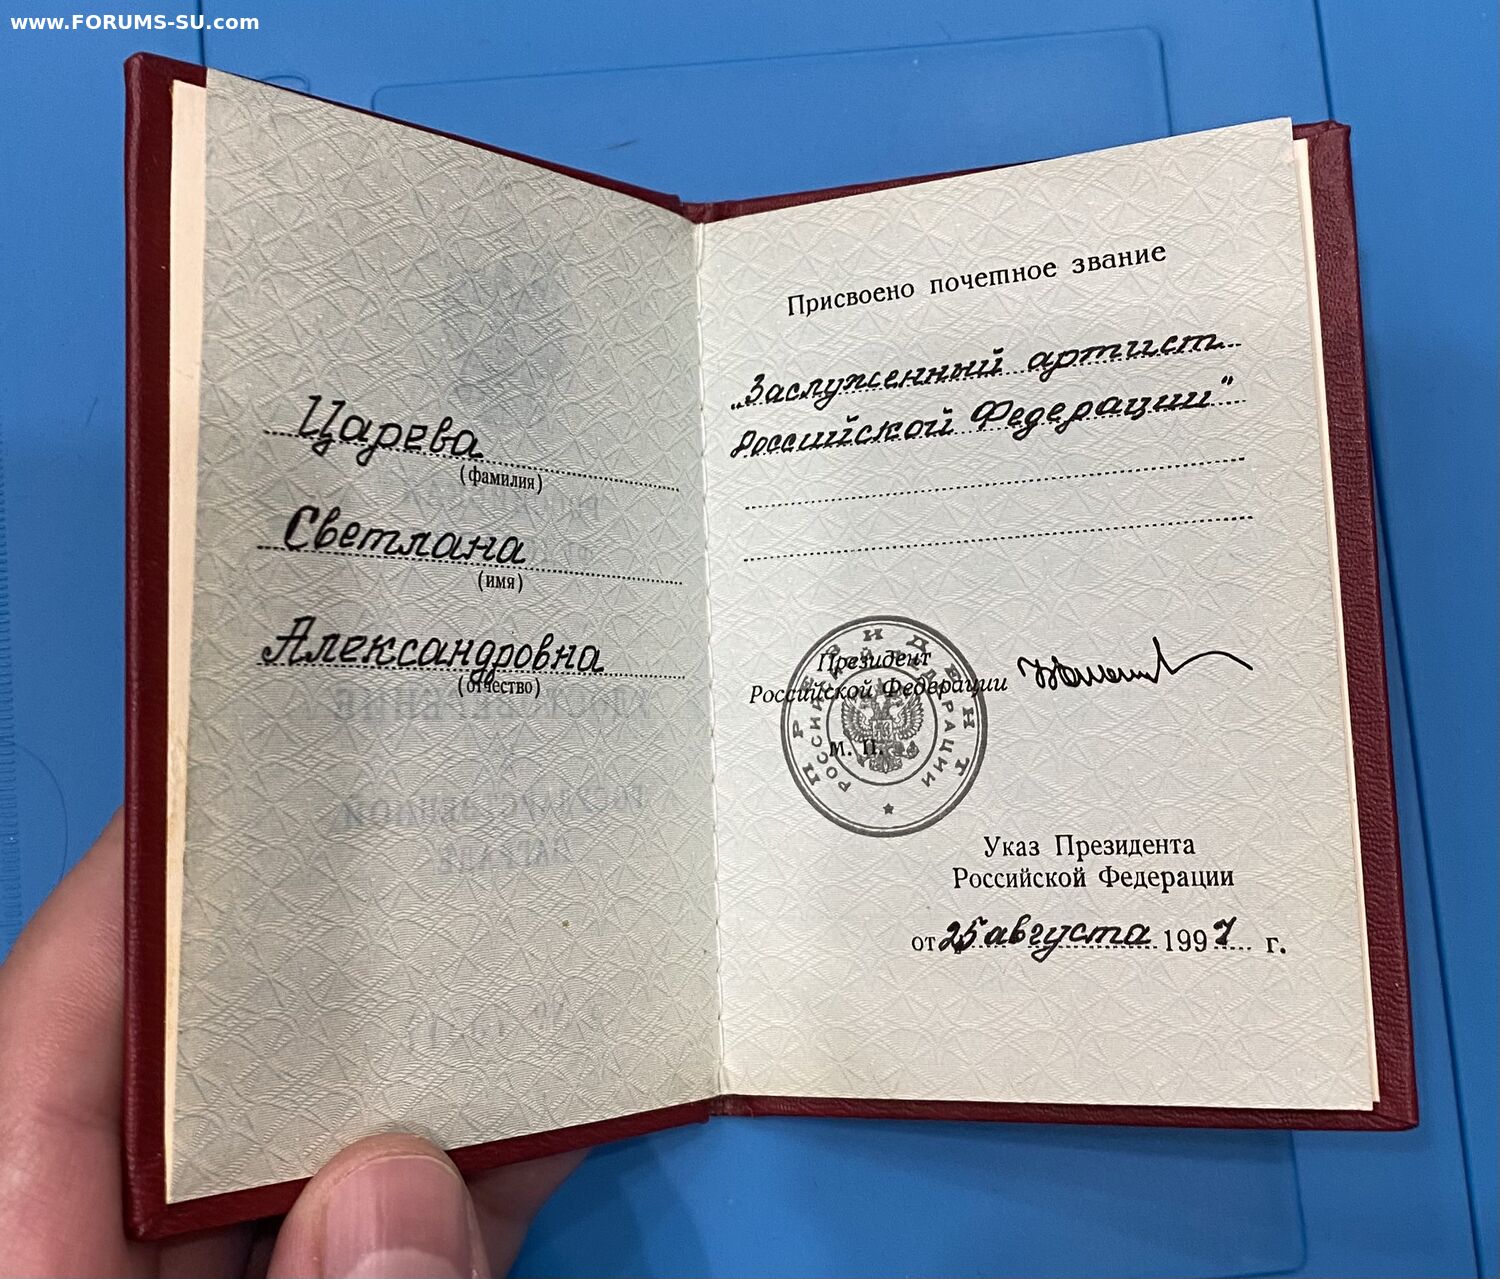 www.FORUMS-SU.com
Царева
(фамилия)
Светлана
(имя)
Александровна
(отчество)
Присвоено почетное звание
„Заслуженный артист
Российской Федерации"
Президент
Российской Федерации
м. п.
ПРЕЗИДЕНТ
РОССИЙСКОЙ ФЕДЕРАЦИИ
Указ Президента
Российской Федерации
от 25 августа 1997 г.